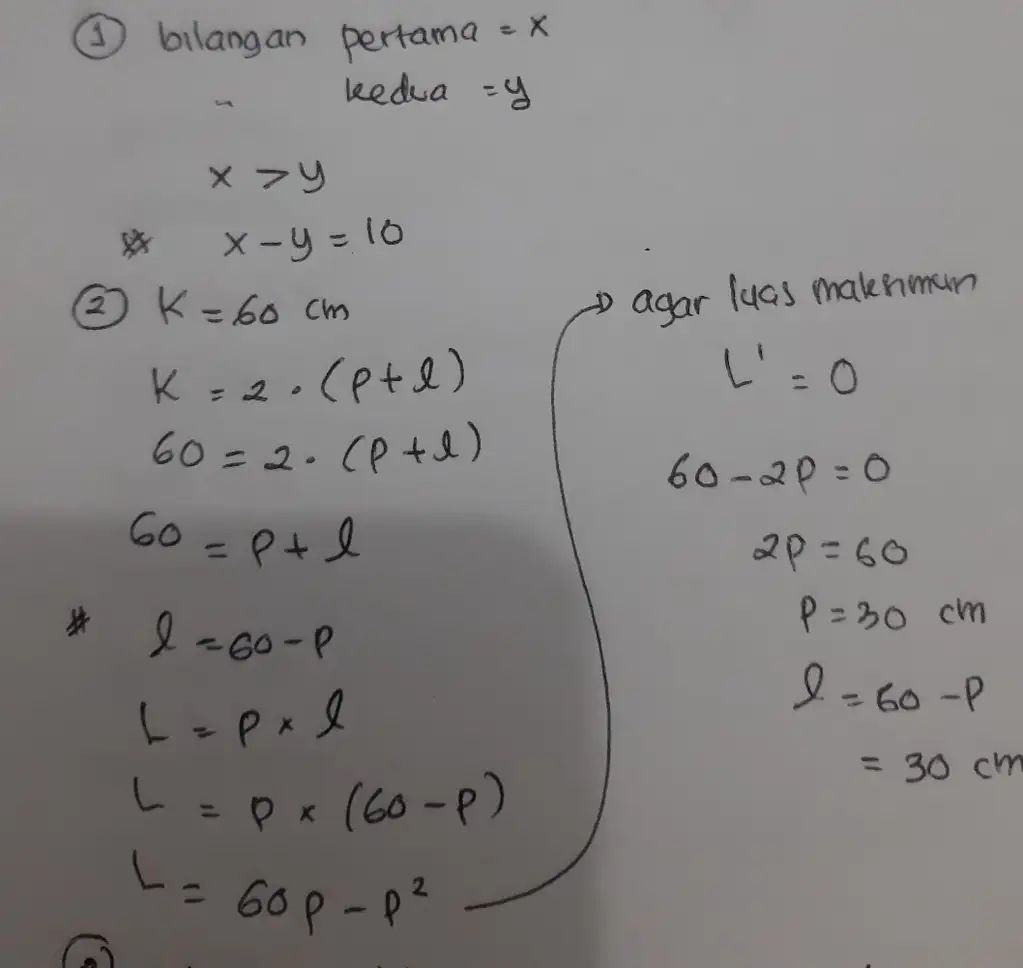 ① bilangan pertama = x
" kedua = y
x > y
x - y = 10
② K = 60 cm
K = 2 . (p + l)
60 = 2 . (p + l)
60 = p + l
* l = 60 - p
L = p x l
L = p x (60 - p)
L = 60p - p²
→ agar luas maksimum
L' = 0
60 - 2p = 0
2p = 60
p = 30 cm
l = 60 - p
= 30 cm